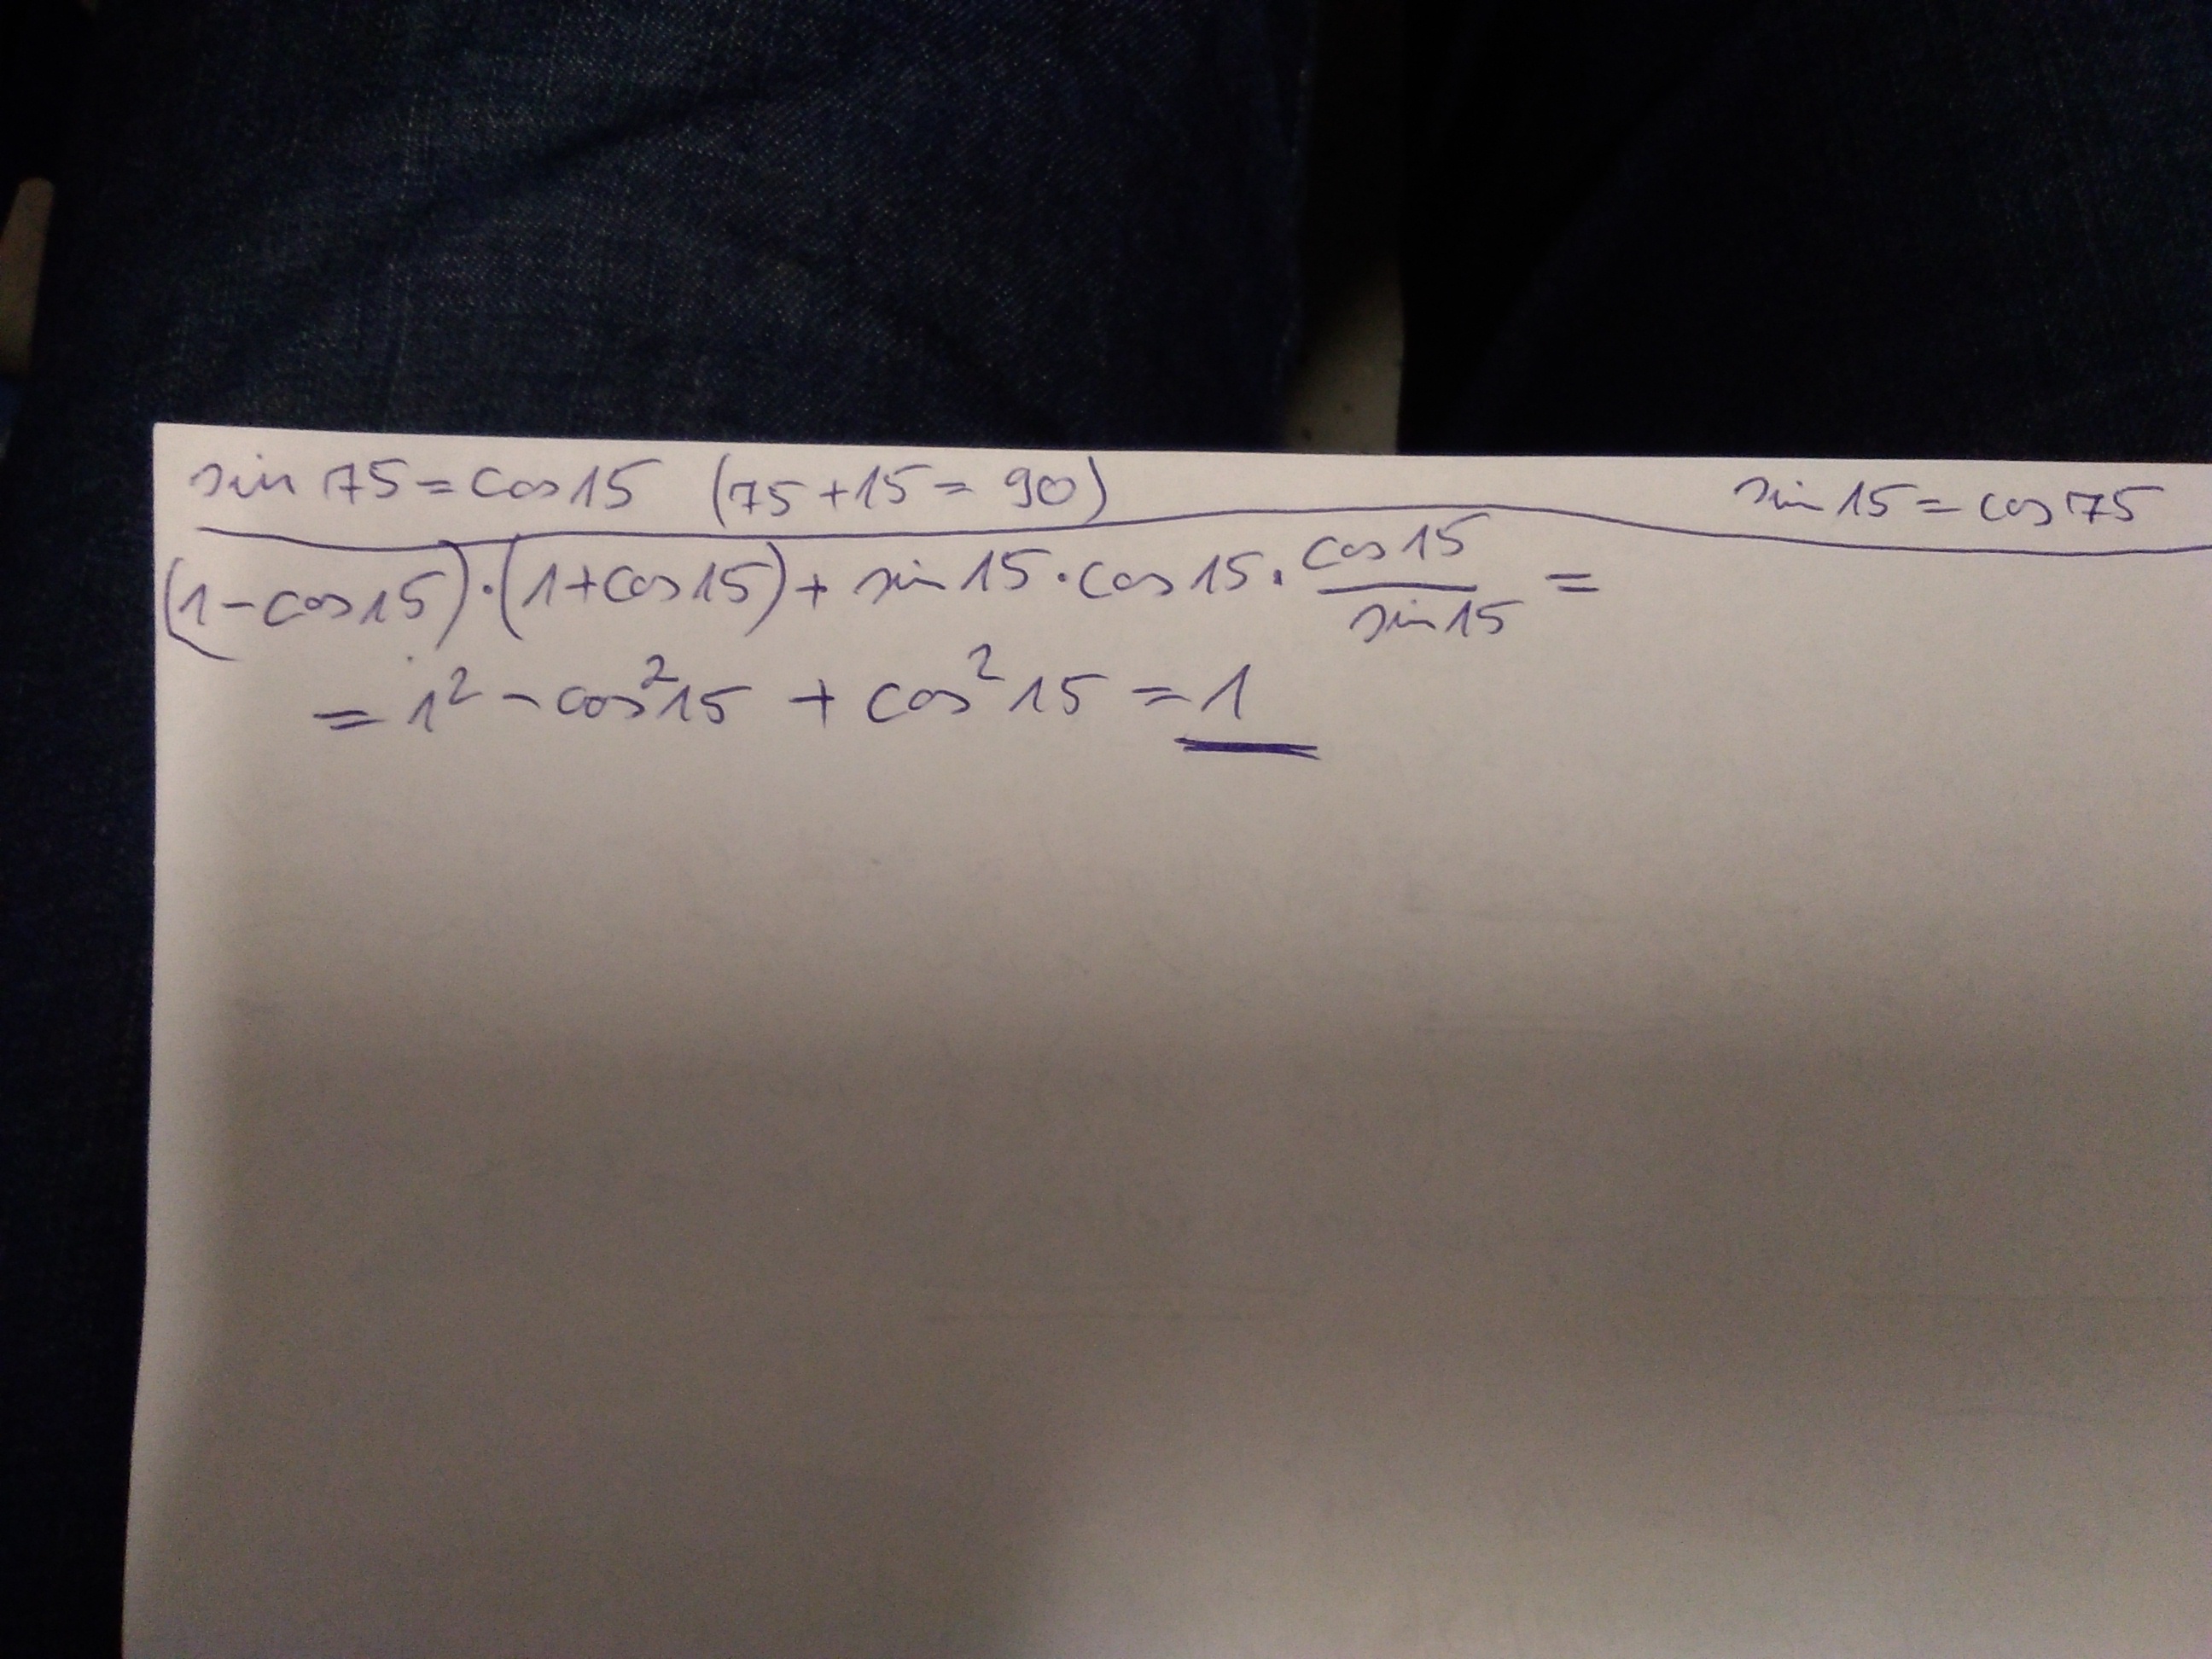 sin 75 = cos 15 (75 + 15 = 90) sin 15 = cos 75
(1 - cos 15) · (1 + cos 15) + sin 15 · cos 15 · cos 15 / sin 15 =
= 1² - cos² 15 + cos² 15 = 1